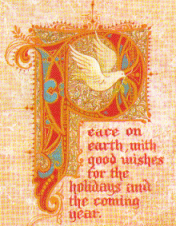 Peace on
earth, with
good wishes
for the
holidays and
the coming
year.